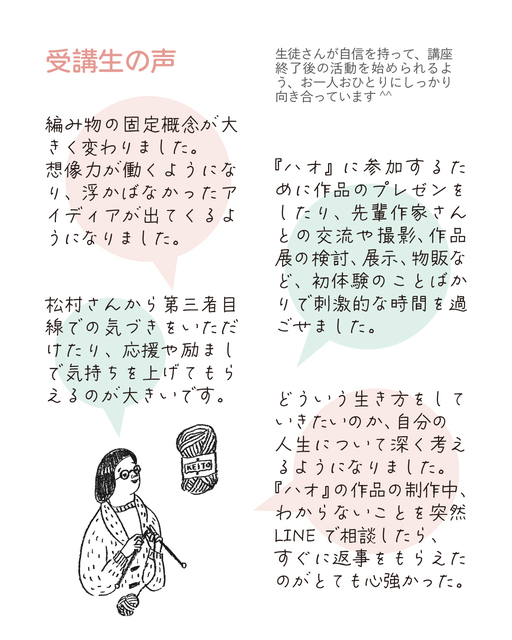 受講生の声
生徒さんが自信を持って、講座
終了後の活動を始められるよ
う、お一人おひとりにしっかり
向き合っています ^^
編み物の固定概念が大
きく変わりました。
想像力が働くようにな
り、浮かばなかったア
イディアが出てくるよ
うになりました。
松村さんから第三者目
線での気づきをいただ
けたり、応援や励まし
で気持ちを上げてもら
えるのが大きいです。
『ハオ』に参加するた
めに作品のプレゼンを
したり、先輩作家さん
との交流や撮影、作品
展の検討、展示、物販な
ど、初体験のことばか
りで刺激的な時間を過
ごせました。
どういう生き方をして
いきたいのか、自分の
人生について深く考え
るようになりました。
『ハオ』の作品の制作中、
わからないことを突然
LINE で相談したら、
すぐに返事をもらえた
のがとても心強かった。
KEITO